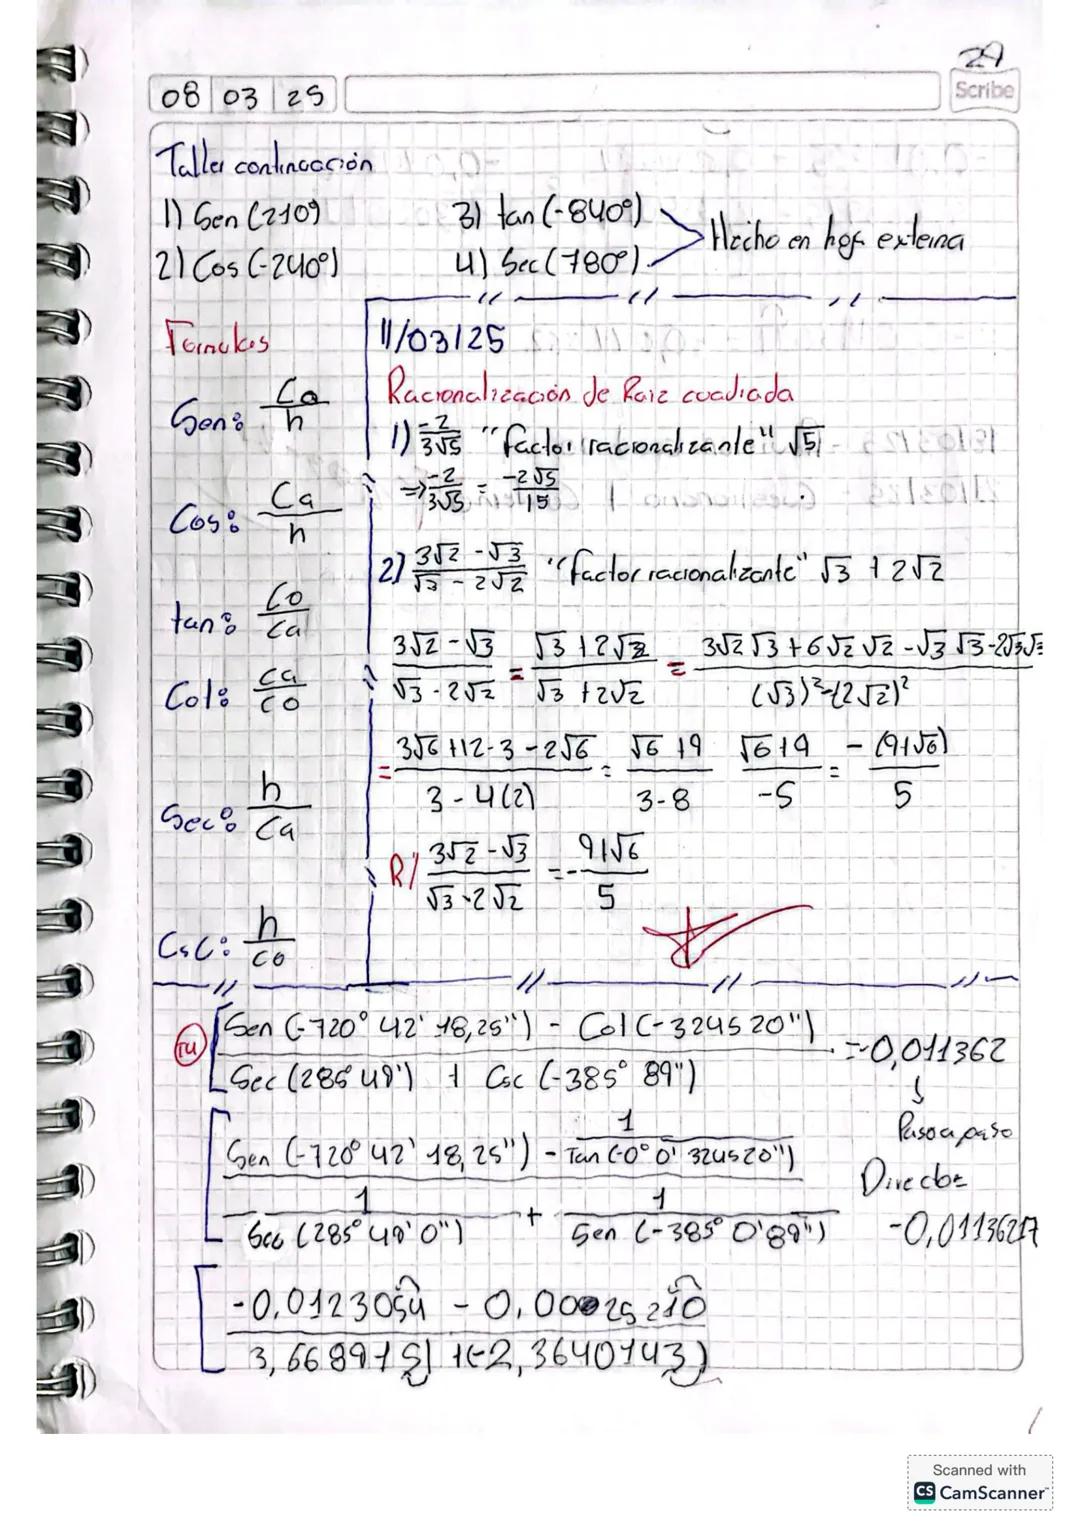 29
Scribe
08 03 25
Taller continuación
1) Sen (210º)
3) tan (-840º)
2) Cos (-240º)
4) Sec (780º)
Hecho en hoja externa
Formulas
Sen: Co/h
Cos: Ca/h
tan: Co/Ca
Cot: ca/co
Sec: h/Ca
Csc: h/co
11/03/25
Racionalización de Raiz cuadrada
1) -2/3√5 "factor racionalizante" √5
⇒ -2/3√5 = -2√5/15
2) 3√2 - √3/√3 - 2√2 "factor racionalizante" √3 + 2√2
3√2 - √3/√3 - 2√2 = √3 + 2√2/√3 + 2√2 = 3√2 √3 + 6√2 √2 - √3 √3 - 2√3√2/(√3)² - (2√2)²
= 3√6 + 12 - 3 - 2√6/3 - 4(2) = √6 + 9/3 - 8 √6 + 9/-5 = - (9+√6)/5
R/ 3√2 - √3/√3 - 2√2 = - 9+√6/5
TU
[Sen (-720° 42' 18,25") - Cot (-324520")/Sec (285° 48') + Csc (-385° 89") = -0,011362
↓
Paso a paso
[Sen (-720° 42' 18,25") - 1/Tan (-0° 0' 324520")/1/Sec (285° 48' 0") + 1/Sen (-385° 0' 89")
Directo:
-0,01136217
[-0,0123054 - 0,00025210/3,6689151 + (-2,3640143)
Scanned with
CS CamScanner